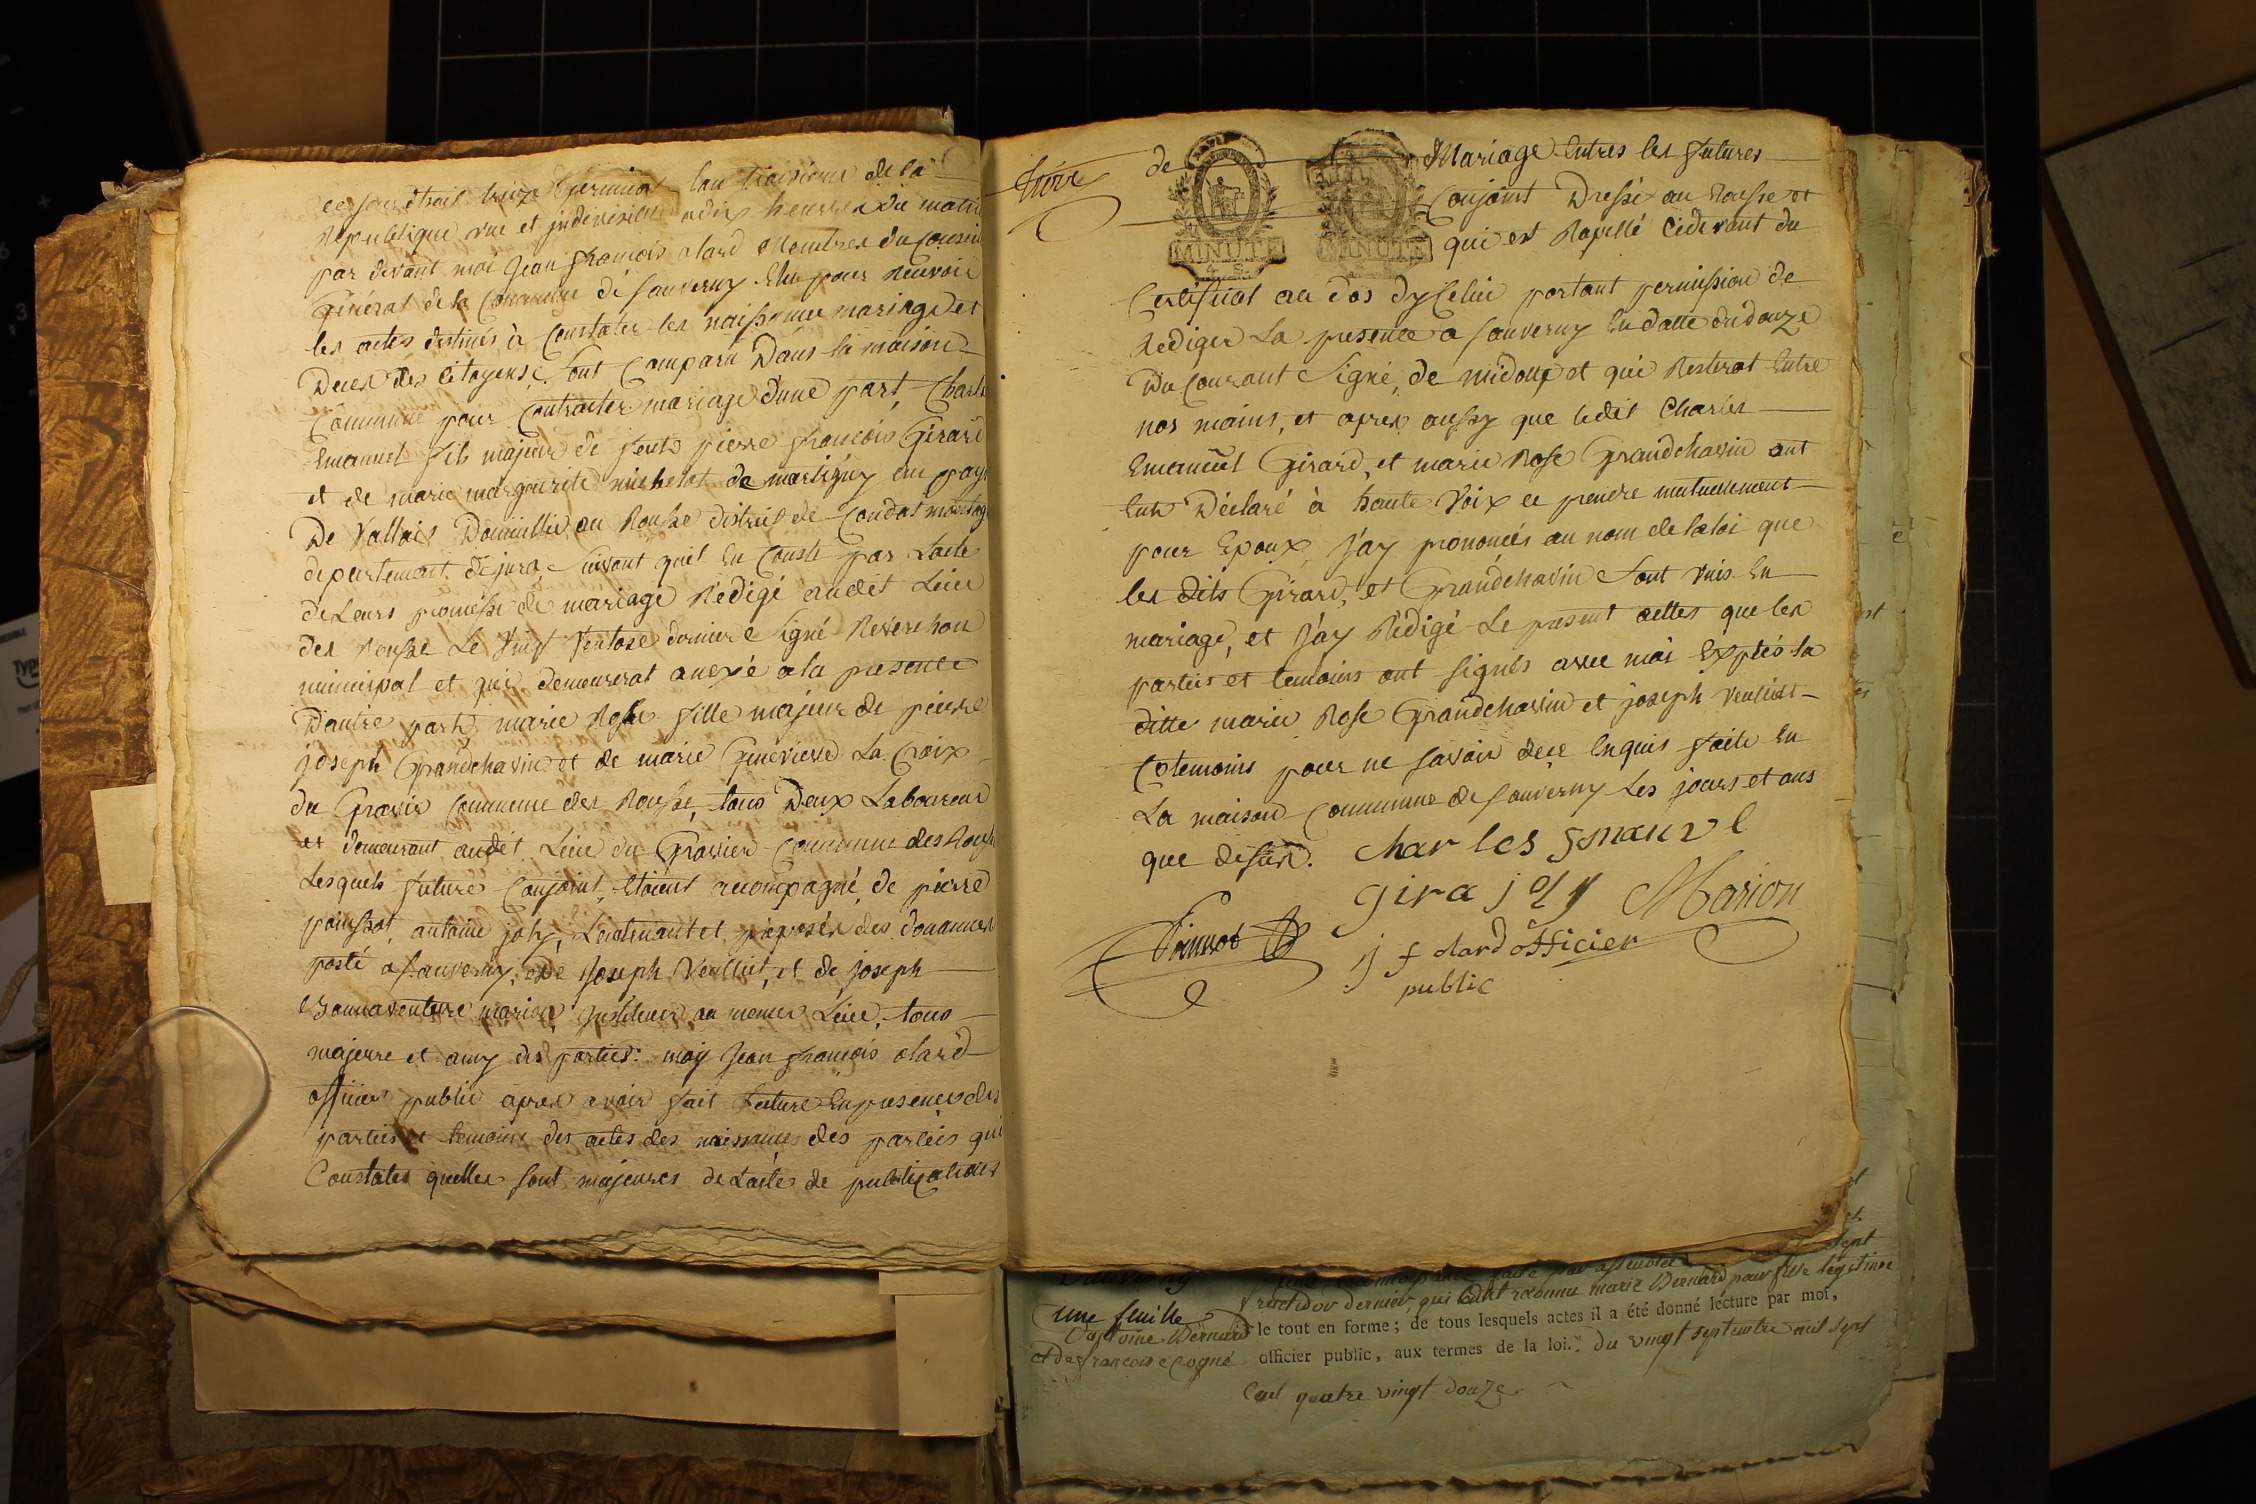 ce jourdhuit treize Germinal lan troisieme de la
Republique une et jndivisible a dix heures du matin
par devant moi Jean françois olard Membres du Conseil
Général de la Commune de Sauverny Elu pour Recevoir
les actes destinés à Constater les naissance mariage et
Deces des Citoyens, Sont Comparu Dans la maison
Commune pour Contracter mariage d'une part, Charle
Emanuel fils majeur de feu pierre françois Girard
et de marie margueritte michelot de martigny en pays
De Vallais Domicillié au Rousse district de Condat montag
departement de jura Suivant quil En Conste par Lacte
de Leurs promesse de mariage Redigé audit Lieu
des Rousse Le Vingt Ventose dernier Signé Reverchon
municipal et qui demeurerat anexé a la presente
Dautre part marie Rose fille majeur de pierre
joseph Grandchavin et de marie Geneviève La Croix
du Gravier Commune des Rousse, tous Deux Laboureur
et demeurant audit Lieu du Gravier Commune des Rouss
Lesquels future Conjoint, Etoient acompagné, de pierre
poinssot, antoine joly, Lieutenant et préposés des douannes
posté a Sauverny, de Joseph Veulliet, et de joseph
Bonnaventure marion Jnstituer au memes Lieu, tous
majeure et amy des parties: moy Jean françois olard
officier public apres avoir fait Lecture En presence des
parties et temoins des actes des naissance des parties qui
Constates quelles sont majeures de Lactes de publications
de Mariage Entres les futures
Conjoint Dressé au Rousse et
MINUTE
MINUTE
qui est Rapellé Cidevant du
4 S.
Certificat au dos dyCelui portant permission de
Rediger La presente a Sauverny En datte du douze
Du Courant Signé, de midoux et qui Resterat Entre
nos mains, et apres aussy que ledit Charles
Emanuel Girard, et marie Rose Grandchavin ont
Eux Déclaré à haute Voix ce prendre mutuellement
pour Epoux, J'ay prononcés au nom de la loi que
les dits Girard, et Grandchavin Sont Unis En
mariage, et J'ay Rédigé Le present acttes que les
parties et temoins ont Signés avec moi Exptés la
ditte marie Rose Grandchavin et joseph Veulliet
Cotemoins pour ne savoir dece Enquis faite En
La maison Commune de Sauverny Les jours et ans
que desus. Charles Emanuel
gira joly Marion
Poinssot
j f olard officier
public
fructidor dernier, qui ont reconnu marie Bernard pour fille légitime
une feuille
le tout en forme; de tous lesquels actes il a été donné lecture par moi,
d'antoine Bernard
et de francoise Cogné officier public, aux termes de la loi. du vingt septembre mil sept
Cent quatre vingt douze